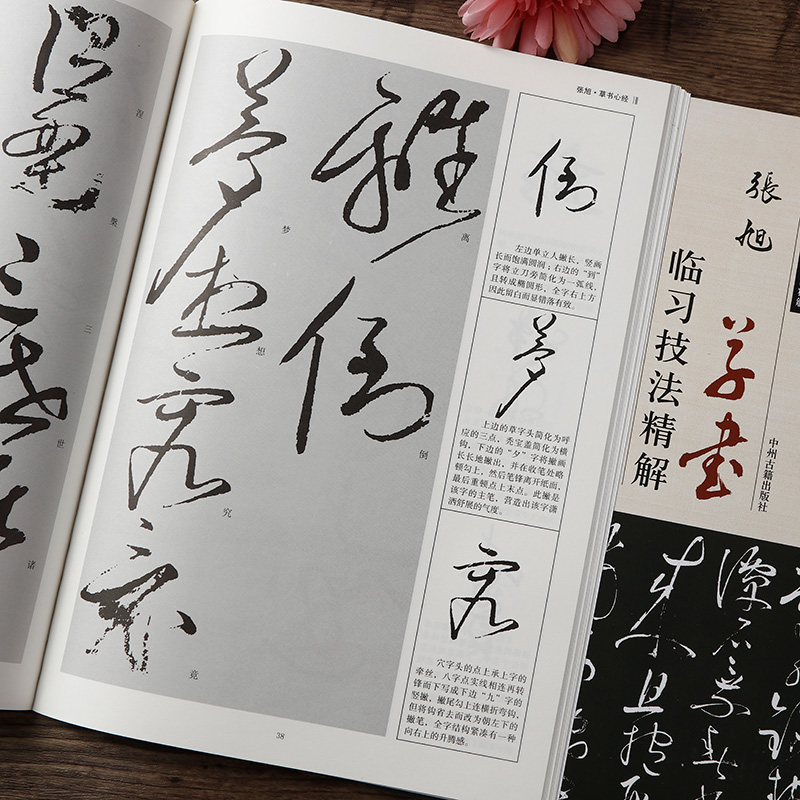 张旭·草书心经
離
离
倒
倒
夢
梦
想
想
究
究
竟
竟
涅
槃
三
世
诸
倒
左边单立人撇长，竖画
长而饱满圆润；右边的“到”
字将立刀旁简化为一弧线，
且转成椭圆形，全字右上方
因此留白而显错落有致。
夢
上边的草字头简化为呼
应的三点，秃宝盖简化为横
钩，下边的“夕”字将撇画
长长地撇出，并在收笔处略
顿勾上，然后笔锋离开纸面，
最后重顿点上末点。此撇是
该字的主笔，营造出该字潇
洒舒展的气度。
究
穴字头的点上承上字的
牵丝，八字点实线相连再转
锋而下写成下边“九”字的
竖撇，撇尾勾上连横折弯钩，
但将钩省去而改为朝左下的
撇笔，全字结构紧凑有一种
向右上的升腾感。
38
張旭
草書
临习技法精解
中州古籍出版社